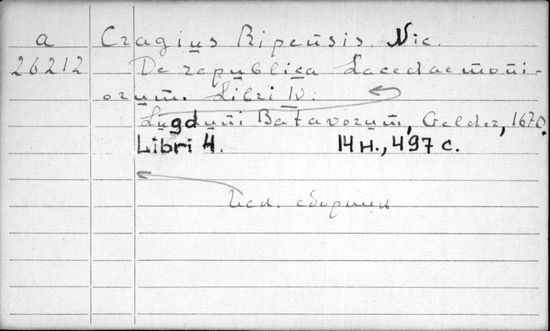 a Cragius Ripensis, Nic.
26212 De republica Lacedaemoni-
orum. Libri IV.
Lugduni Batavorum, Gelder, 1670.
Libri 4. 14 н., 497 с.
Иск. сборник